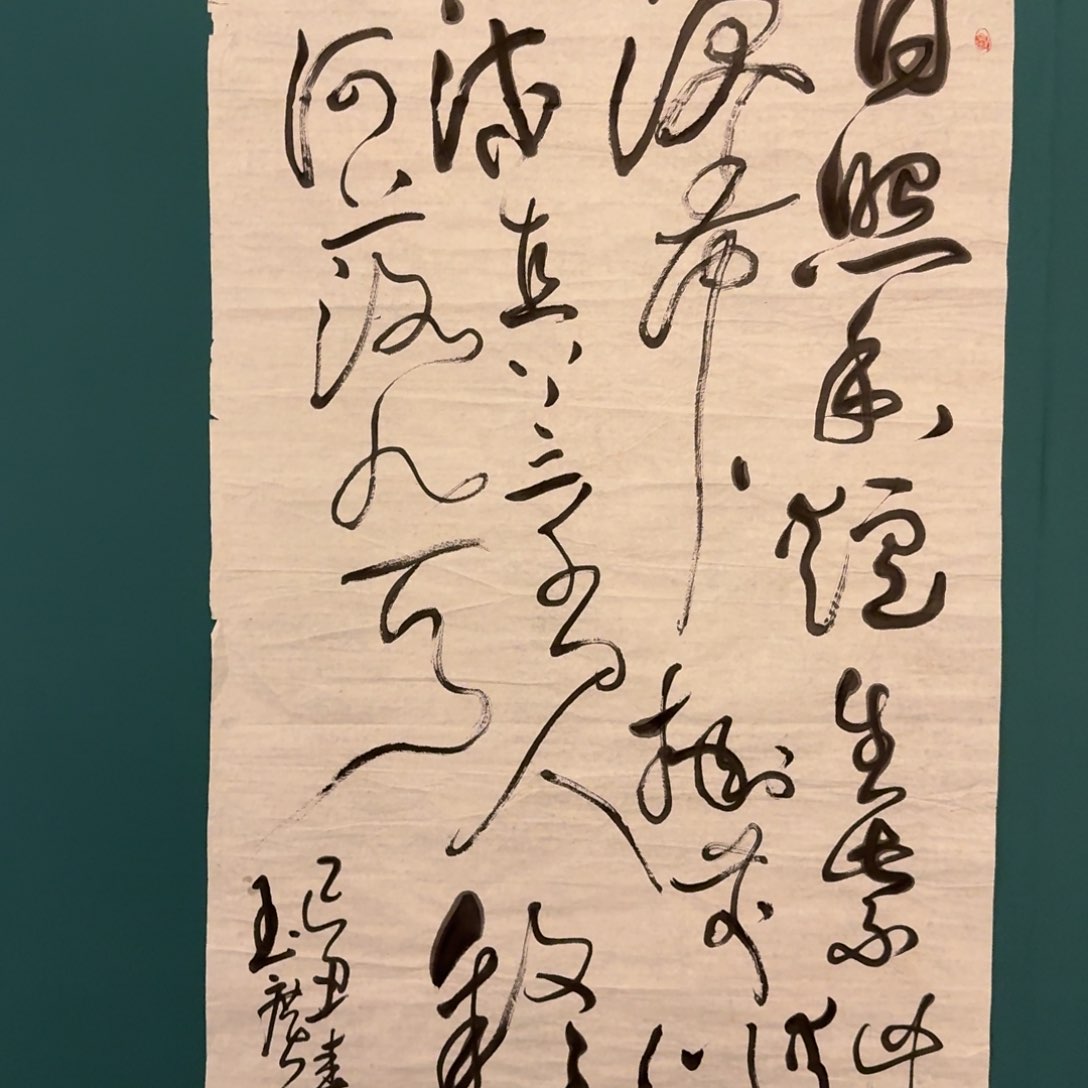 日照香爐生紫烟
瀑布掛前川
流直下三千尺疑
河落九天
己丑春